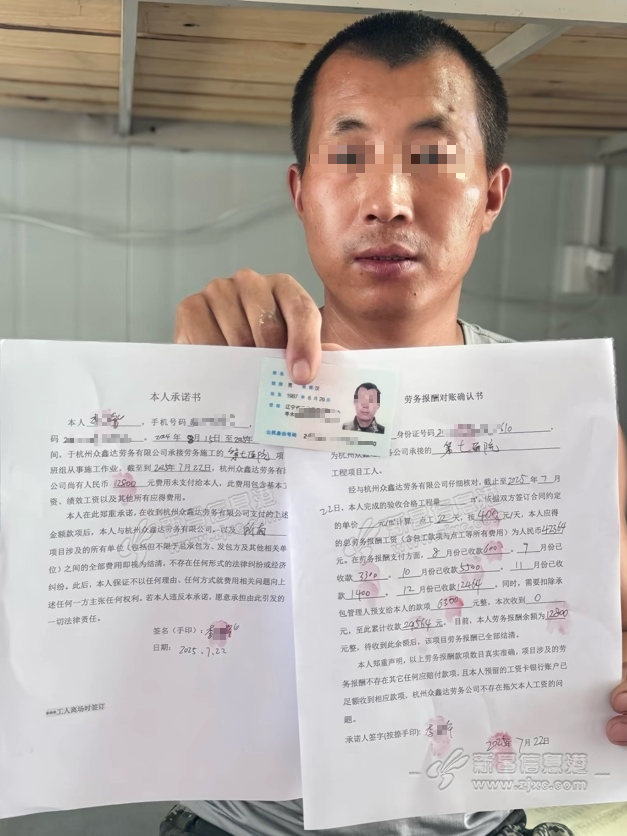 本人承诺书
本人 手机号码
码 2 2024年8月15日至2024年
间，于杭州众鑫达劳务有限公司承接劳务施工的 第七医院 项
班组从事施工作业。截至到2025年7月22日，杭州众鑫达劳务有
公司尚有人民币 12800 元费用未支付给本人，此费用包含基本工
资、绩效工资以及其他所有应得费用。
本人在此郑重承诺，在收到杭州众鑫达劳务有限公司支付的上述
金额款项后，本人与杭州众鑫达劳务有限公司，以及
项目涉及的所有单位（包括但不限于总承包方、发包方及其他相关单
位）之间的全部费用即视为结清，不存在任何形式的法律纠纷或经济
纠纷。此后，本人保证不以任何理由、任何方式就费用相关问题向上
述任何一方主张任何权利。若本人违反本承诺，愿意承担由此引发的
一切法律责任。
签名（手印）：李
日期： 2025.7.22
***工人离场时签订
1987 年 5 月 29 日
辽宁
公民身份号码 2
劳务报酬对账确认书
身份证号 2 610
为杭州众 公司承接的 第七医院
工程项目工人。
经与杭州众鑫达劳务有限公司仔细核对，截止至2025年7月
22日，本人完成的验收合格工程量 ㎡，依据双方签订合同的定
的单价 元/㎡计算，点工 工，按 400 元/天，本人应得
的总劳务报酬工资（含包工款项与点工等所有费用）为人民币42364
元。在劳务报酬支付方面，8 月份已收款600，9 月份已
收款 3300，10 月份已收款5500，11 月份已收款
1400，12 月份已收款12464，同时，需要扣除承
包管理人预支给本人的款项 6300 元整，本次收到 0
元，至此累计收款 29564 元。目前，本人劳务报酬余额为 12800
元整，待收到此余额后，该项目劳务报酬已全部结清。
本人郑重声明，以上劳务报酬款项数目真实准确，项目涉及的劳
务报酬不存在其它任何应赔付款项，且本人预留的工资卡银行账户已
足额收到相应款项，杭州众鑫达劳务公司不存在拖欠本人工资的问
题。
承诺人签字(按捺手印)：李
2025年7月22日
新昌信息港
www.zjxc.com